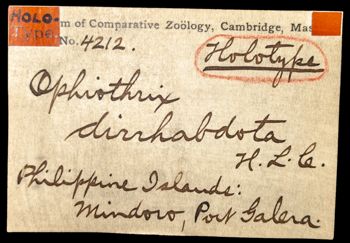 HOLO-
Type.
m of Comparative Zoölogy, Cambridge, Mas
No. 4212.
Holotype
Ophiothrix
dirrhabdota
H. L. C.
Philippine Islands:
Mindoro, Port Galera.